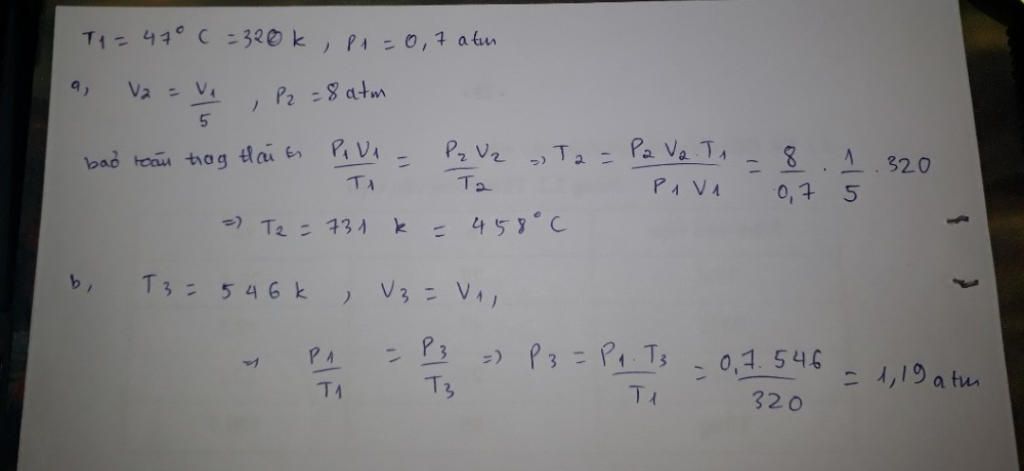 T1 = 47° C = 320 k , P1 = 0,7 atm
a, V2 = V1/5 , P2 = 8 atm
P1 V1/T1 = P2 V2/T2 => T2 = P2 V2 . T1/P1 V1 = 8/0,7 . 1/5 . 320
=> T2 = 731 k = 458° C
b, T3 = 546 k , V3 = V1,
=> P1/T1 = P3/T3 => P3 = P1 . T3/T1 = 0,7 . 546/320 = 1,19 atm